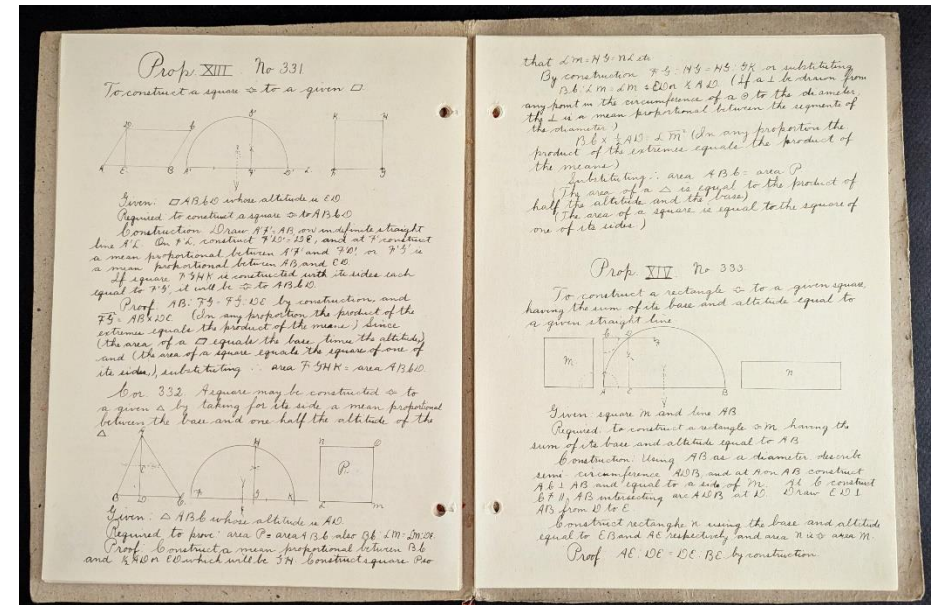 Prop. XIII No 331
To construct a square ≎ to a given ▱
Given: ▱ ABCD whose altitude is ED
Required to construct a square ≎ to ABCD
Construction Draw A'F' = AB on indefinite straight
line A'L. On F'L, construct F'D' = DE, and at F' construct
a mean proportional between A'F' and F'D', or F'G' is
a mean proportional between AB and ED.
If square FGHK is constructed with its sides each
equal to F'G', it will be ≎ to ABCD.
Proof. AB : FG = FG : DE by construction, and
FG² = AB × DE. (In any proportion the product of the
extremes equals the product of the means) Since
(the area of a ▱ equals the base times the altitude)
and (the area of a square equals the square of one of
its sides,), substituting ∴ area FGHK = area ABCD.
Cor 332. A square may be constructed ≎ to
a given △ by taking for its side a mean proportional
between the base and one half the altitude of the
△.
Given: △ ABC whose altitude is AD
Required to prove: area P = area ABC also
Proof: Construct a mean proportional between BC
and ½ AD or ED which will be GH. Construct square P so
that LM = HG = NL etc
By construction FG : HG = HG : GK or substituting
BC : LM = LM : ED or ½ AD. (If a ⊥ be drawn from
any point in the circumference of a ⊙ to the diameter,
the ⊥ is a mean proportional between the segments of
the diameter)
BC × ½ AD = LM² (In any proportion the
product of the extremes equals the product of
the means)
Substituting ∴ area ABC = area P
(The area of a △ is equal to the product of
half the altitude and the base)
(The area of a square is equal to the square of
one of its sides)
Prop XIV No 333
To construct a rectangle ≎ to a given square
having the sum of its base and altitude equal to
a given straight line
m
n
Given square m and line AB
Required: to construct a rectangle ≎ m having the
sum of its base and altitude equal to AB.
Construction: Using AB as a diameter describe
semi-circumference ADB and at A on AB construct
AC ⊥ AB and equal to a side of M. At C construct
CF ∥ AB intersecting arc ADB at D. Draw ED ⊥
AB from D to E
Construct rectangle n using the base and altitude
equal to EB and AE respectively and area n is ≎ area M.
Proof AE : DE = DE : BE by construction